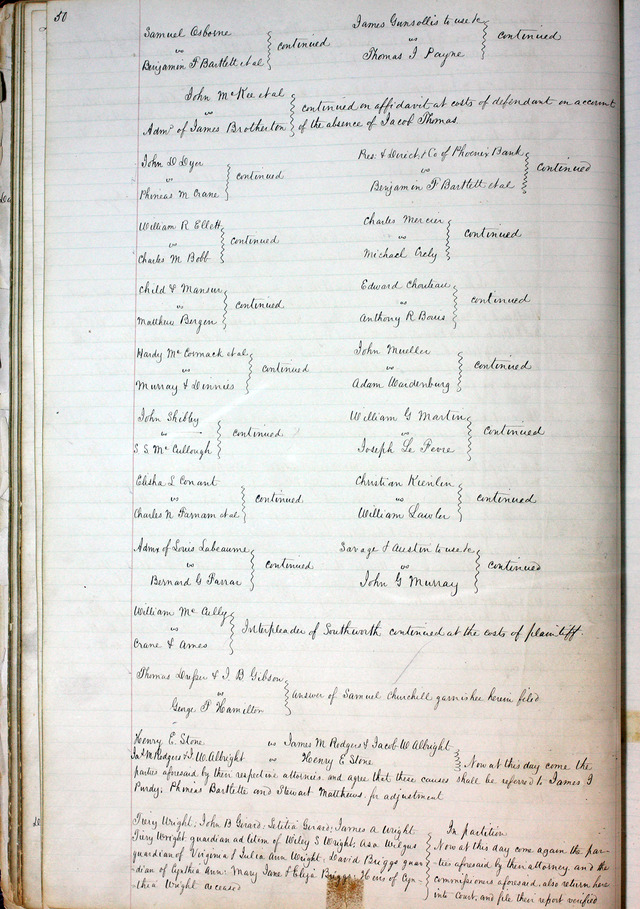 50
Samuel Osborne
vs
Benjamin F Bartlett et al
continued
James Gunsollis to use &c
vs
Thomas I Payne
continued
John McKee et al
vs
Admr of James Brotherton
continued on affidavit at costs of defendant on account
of the absence of Jacob Thomas
John D Dyer
vs
Phineas M Crane
continued
Pres. & Direct. & Co of Phoenix Bank
vs
Benjamin F Bartlett et al
continued
William R Ellett
vs
Charles M Bobb
continued
Charles Mercier
vs
Michael Cody
continued
Child & Mansur
vs
Matthew Bergen
continued
Edward Chouteau
vs
Anthony R Bouis
continued
Hardy McCormack et al
vs
Murray & Dennies
continued
John Mueller
vs
Adam Waidenburg
continued
John Shibley
vs
S. S. McCullough
continued
William G Martin
vs
Joseph Le Fevre
continued
Elisha S Conant
vs
Charles N Farnam et al
continued
Christian Kienlin
vs
William Lawler
continued
Admx of Louis Labeaume
vs
Bernard G Farrar
continued
Savage & Austin to use &c
vs
John G Murray
continued
William McCully
vs
Crane & Ames
Interpleader of Southworth continued at the costs of plaintiff.
Thomas & I B Gibson
vs
George P Hamilton
answer of Samuel Churchill garnishee herein filed
Henry E. Stone vs James M Rodgers & Jacob W Albright
Jas M Rodgers & J. W. Albright vs Henry E Stone
Now at this day come the
parties aforesaid by their respective attornies and agree that these causes shall be referred to James I
Purdy, Phineas Bartlette and Stewart Matthews for adjustment
Wright, John B Girard, Letitia Girard, James A Wright
Wright guardian ad litem of Wiley S Wright, Asa Wilgus
guardian of Virginia & Julia Ann Wright, David Briggs guar
dian of Cynthia Ann, Mary Jane & Eliza Briggs, Heirs of Cyn-
thia Wright deceased
In partition
Now at this day come again the par-
ties aforesaid by their attorney and the
commissioners aforesaid also return here
into Court, and file their report verified